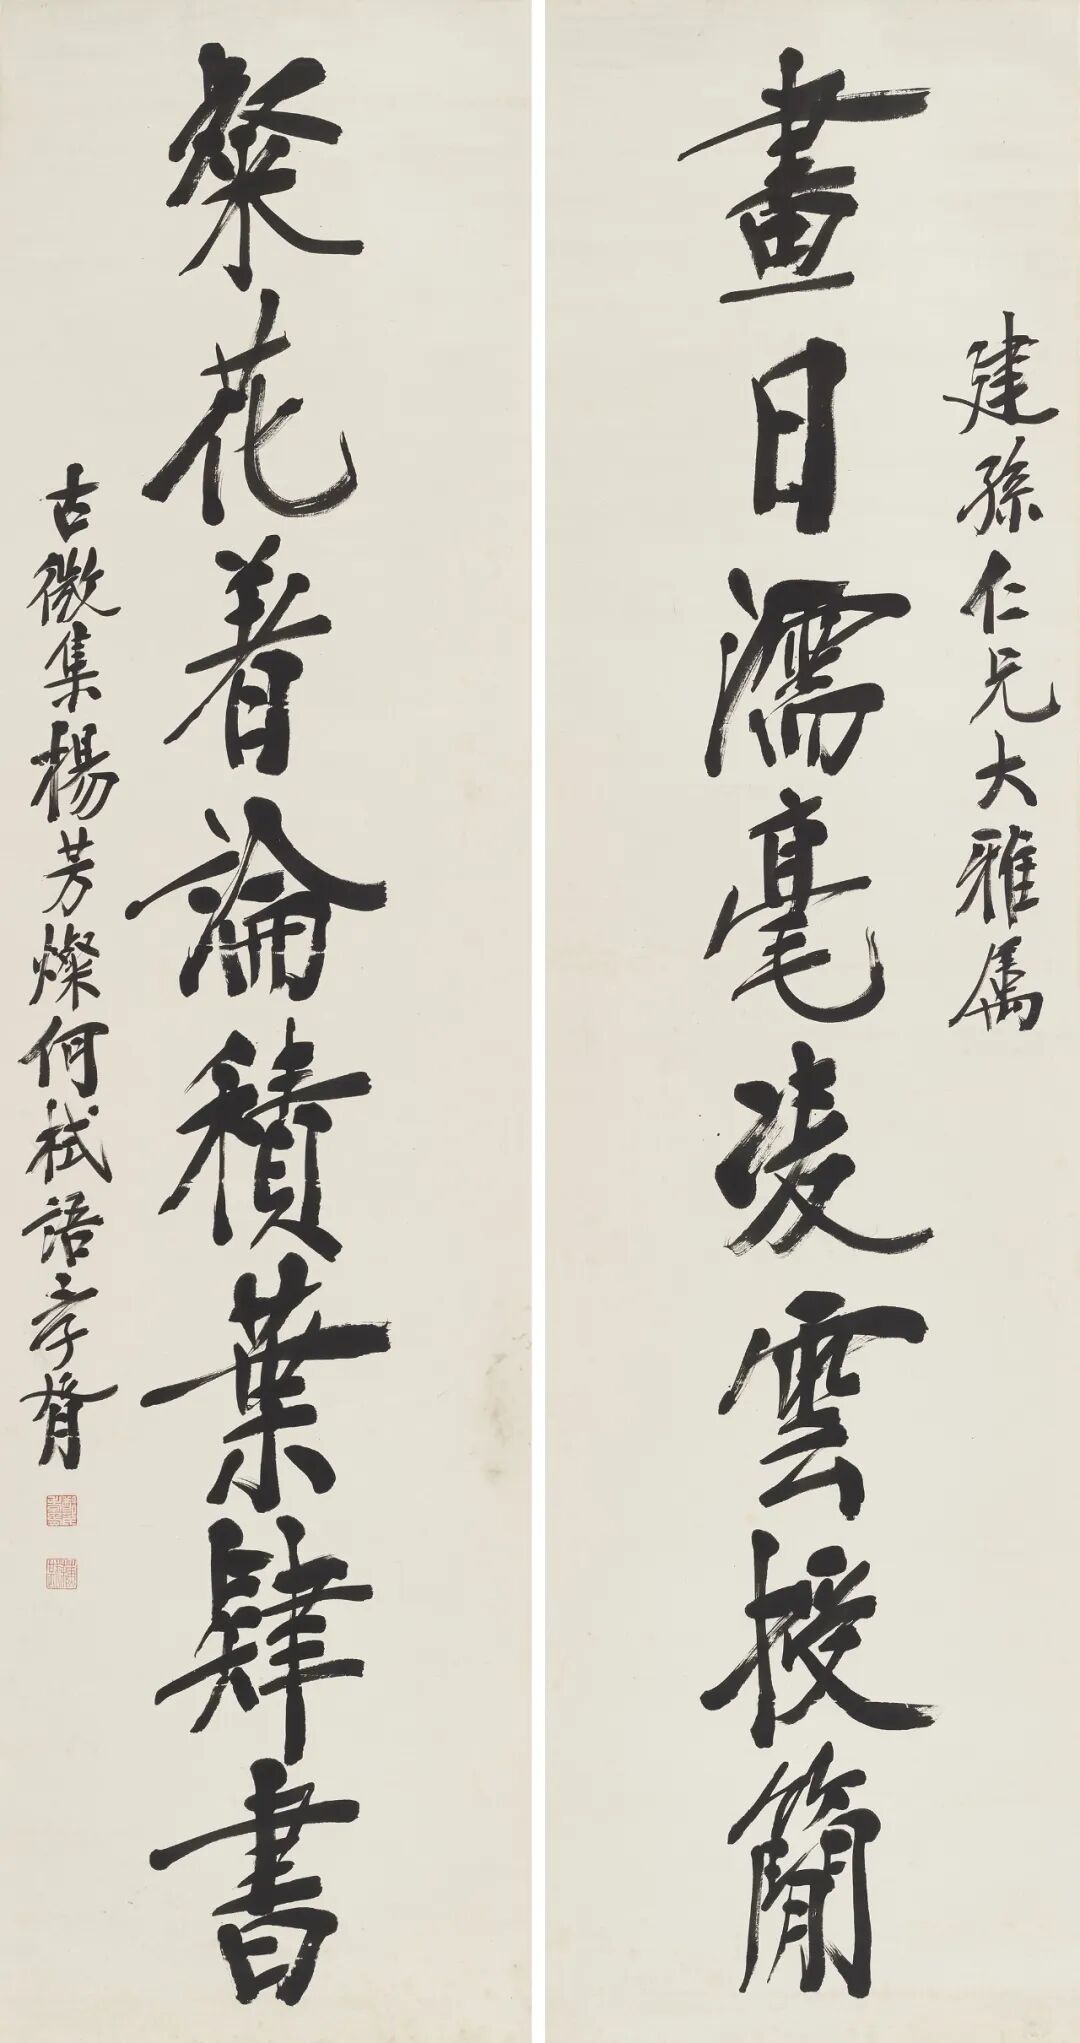 建孫仁兄大雅属
畫日濡毫凌雲授簡
粲花着論積葉肄書
古微集楊芳燦何栻語孝胥